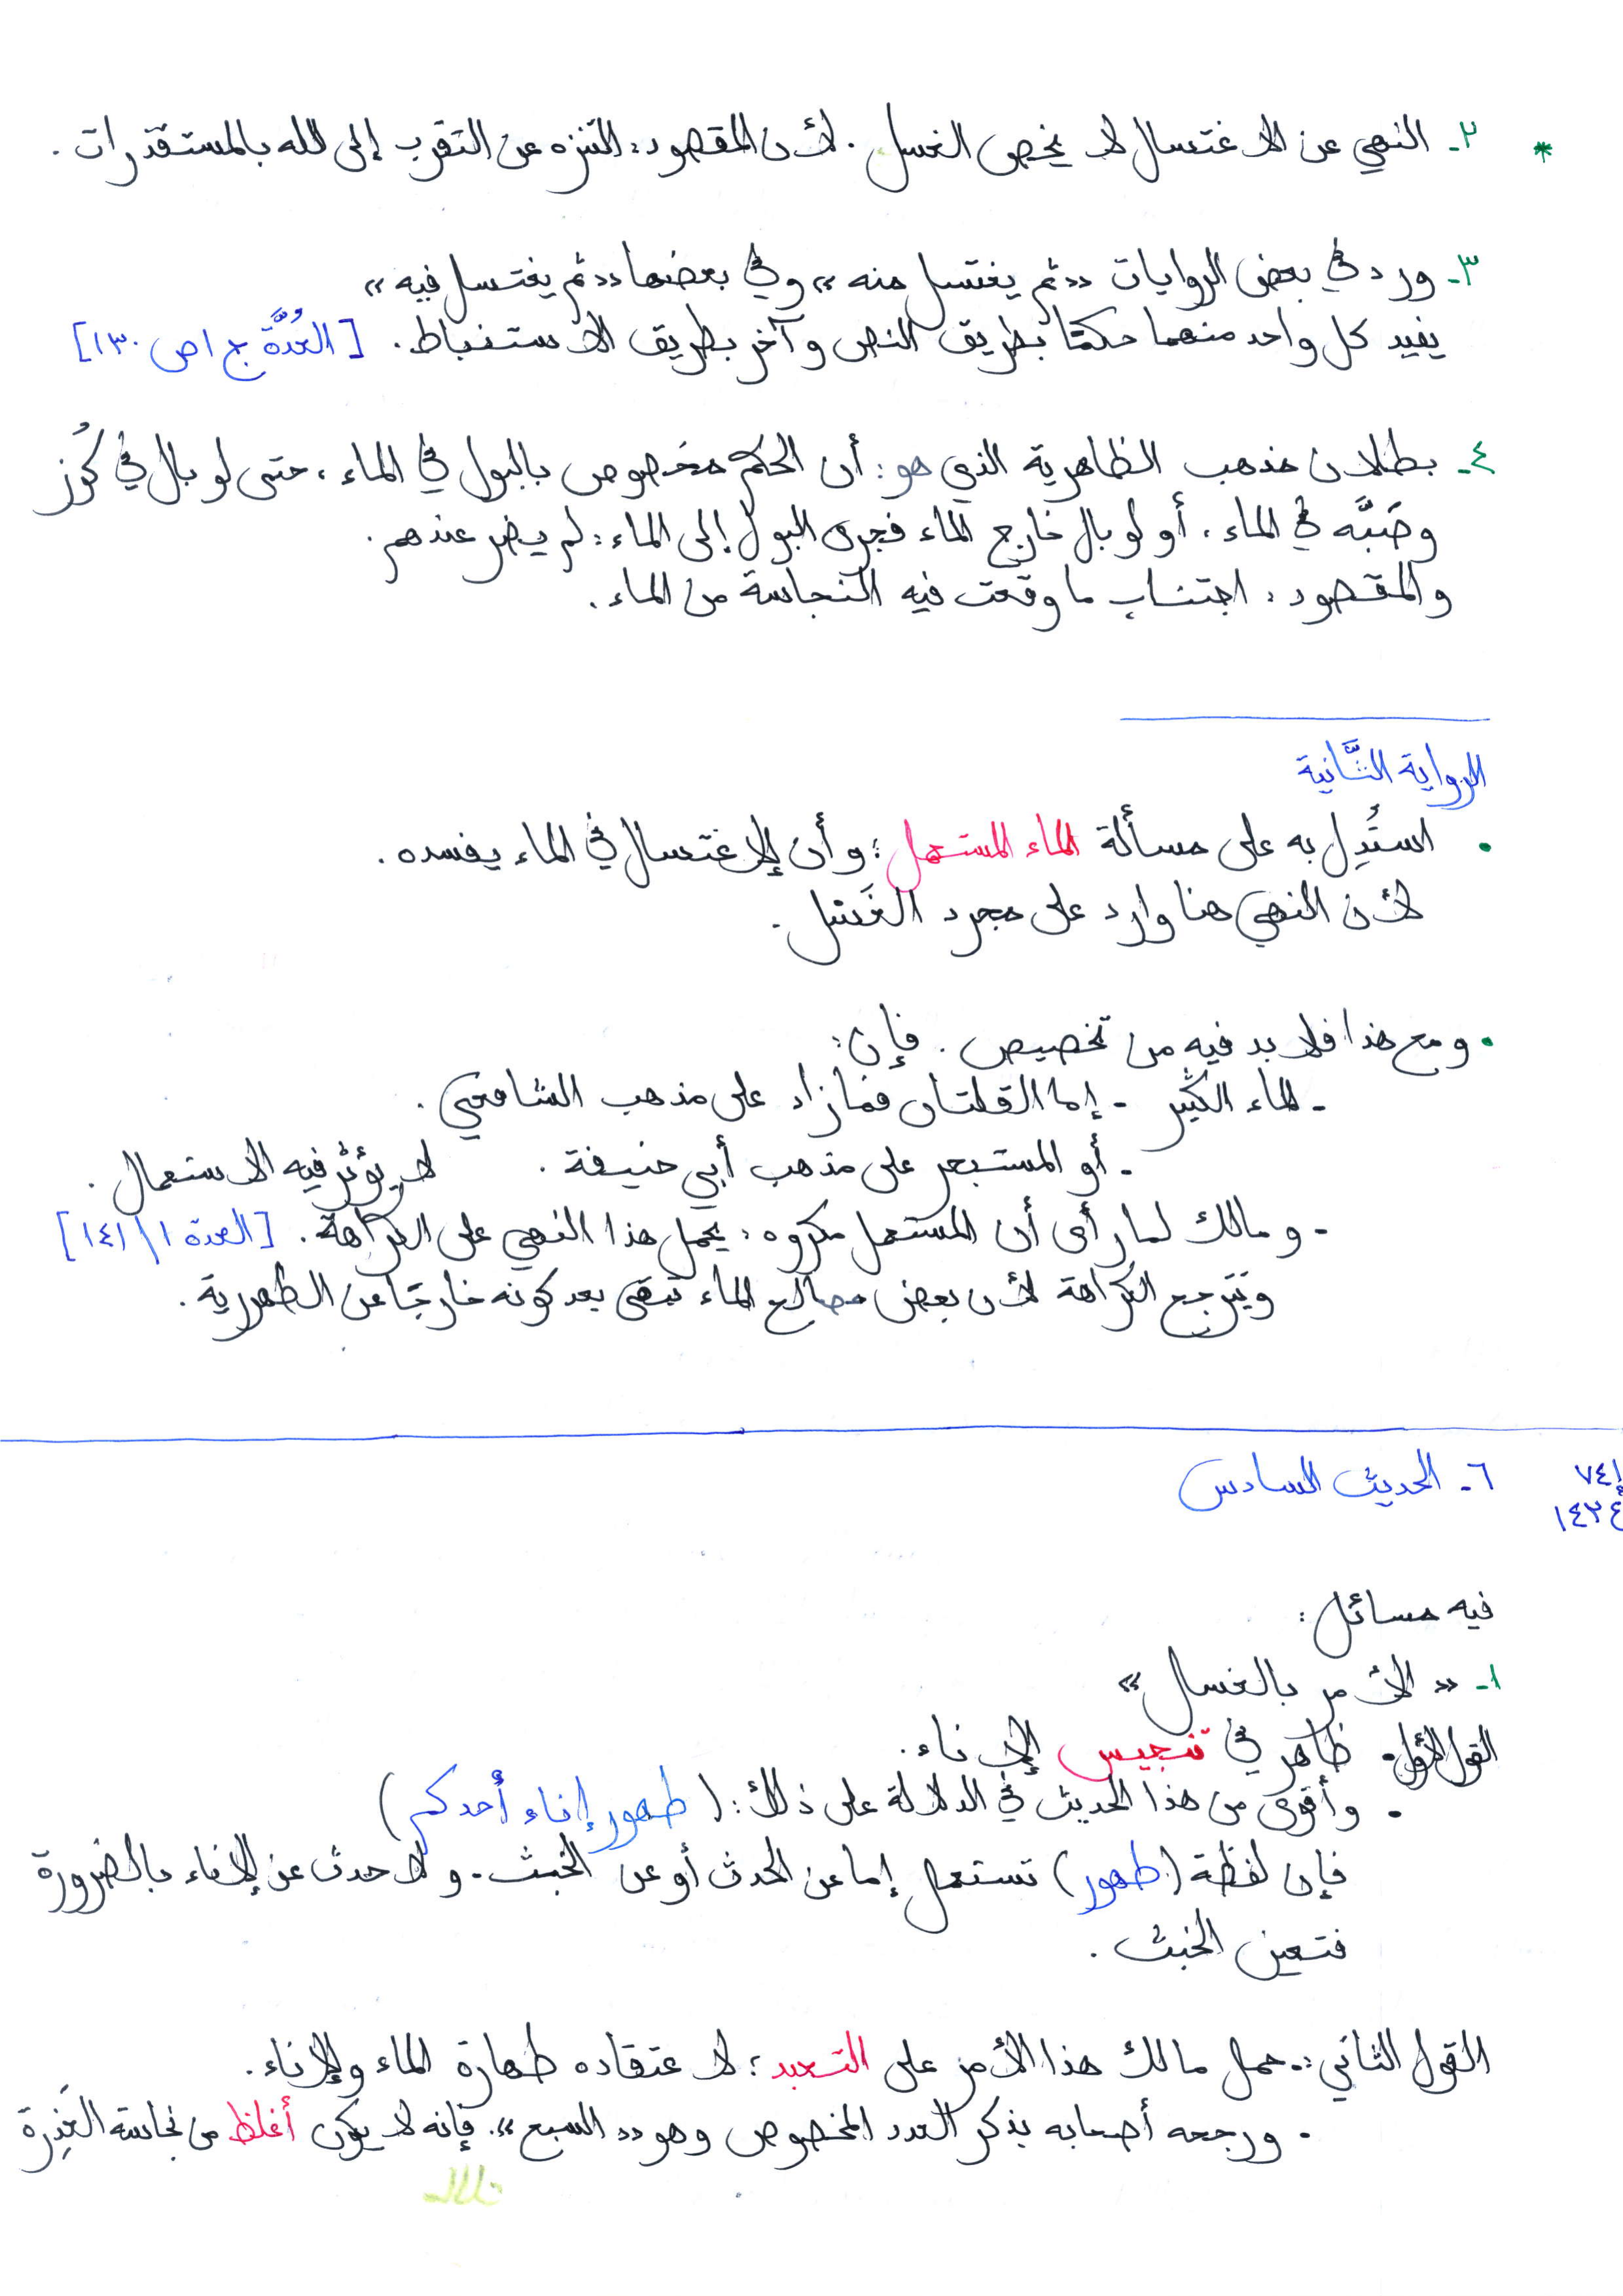 * ٢- النهي عن الاغتسال لا يخص الغسل. لأن المقصود: التنزه عن التقرب إلى الله بالمستقذرات.
٣- ورد في بعض الروايات «ثم يغتسل منه» وفي بعضها «ثم يغتسل فيه»
يفيد كل واحد منهما حكمًا بطريق النص وآخر بطريق الاستنباط. [العُدَّة ج١ ص١٣٠]
٤- بطلان مذهب الظاهرية الذي هو: أن الحكم مخصوص بالبول في الماء، حتى لو بال في كُوز
وصَبَّه في الماء، أو لو بال خارج الماء فجرى البول إلى الماء: لم يضر عندهم.
والمقصود: اجتناب ما وقعت فيه النجاسة من الماء.
الرواية الثَّانية
• استُدِل به على مسألة الماء المستعمل؛ وأن الاغتسال في الماء يفسده.
لأن النهي هنا وارد على مجرد الغَسْل.
• ومع هذا فلا بد فيه من تخصيص. فإن:
- الماء الكثير - إما القلتان فما زاد على مذهب الشافعي.
- أو المستبحر على مذهب أبي حنيفة. لا يؤثر فيه الاستعمال.
- ومالك لما رأى أن المستعمل مكروه: يحمل هذا النهي على الكراهة. [العدة ١/١٤١]
ويَترجح الكراهة لأن بعض مصالح الماء تبقى بعد كونه خارجًا عن الطهورية.
٦- الحديث السادس
فيه مسائل:
١- «الأمر بالغسل»
القول الأول- ظاهر في تنجيس الإناء.
• وأقوى من هذا الحديث في الدلالة على ذلك: (طهور إناء أحدكم)
فإن لفظة (طهور) تستعمل إما عن الحدث أو عن الخبث. ولا حدث عن الإناء بالضرورة
فتعين الخبث.
القول الثاني:- حمل مالك هذا الأمر على التعبد؛ لاعتقاده طهارة الماء والإناء.
• ورجحه أصحابه بذكر العدد المخصوص وهو «السبع». فإنه لا يكون أغلظ من نجاسة العَذِرة